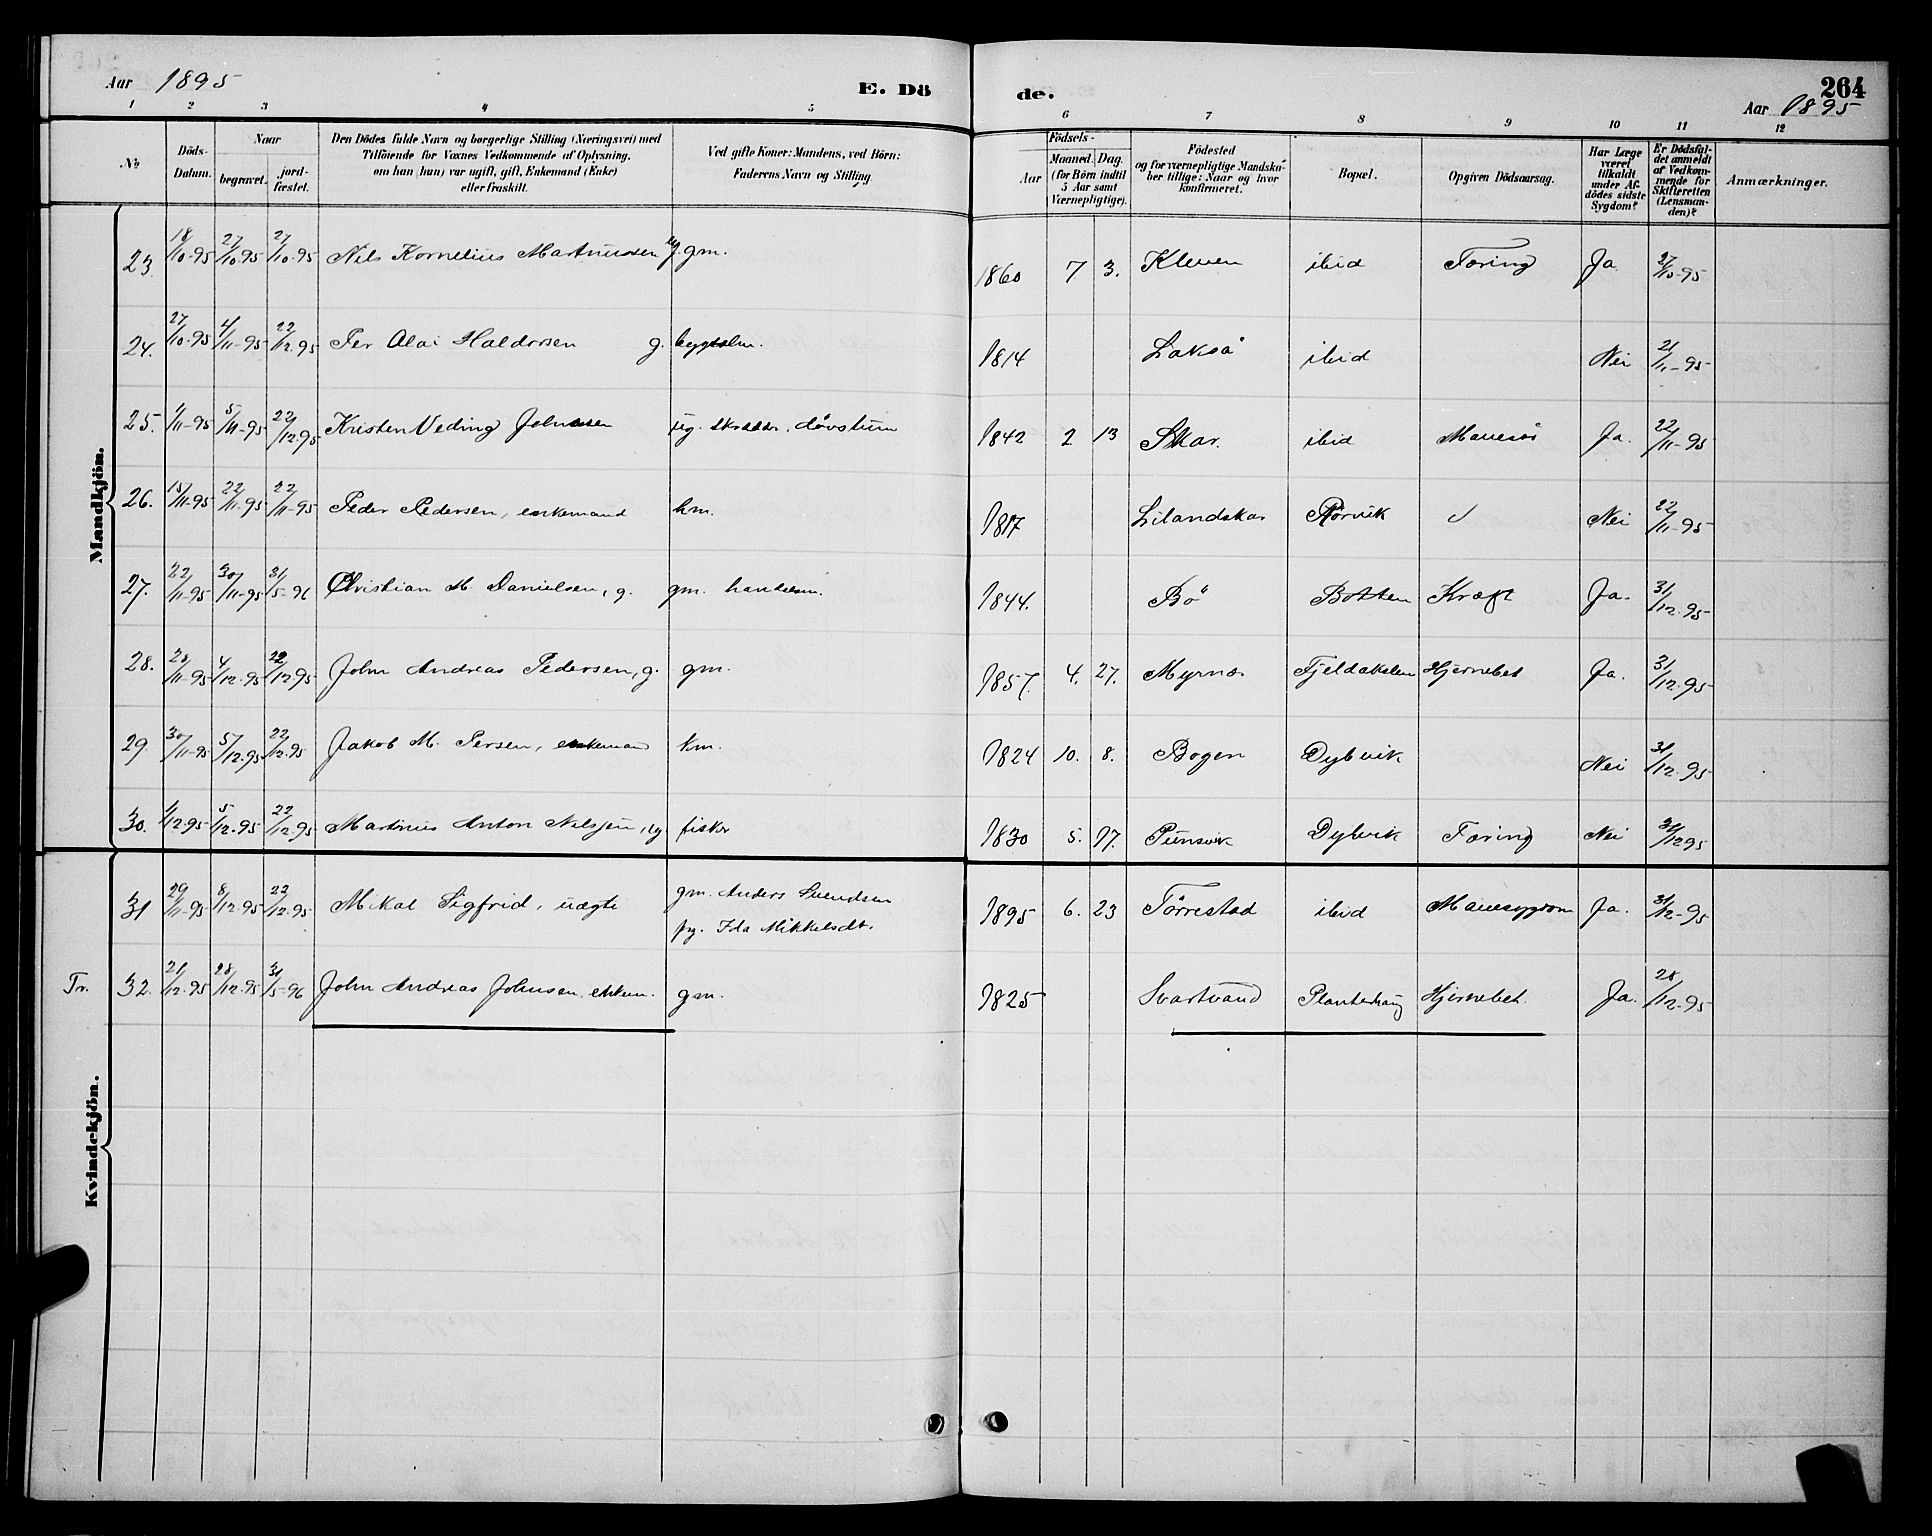 Aar 1895
E. Dö
de.
264
Aar 1895
1 2 3 4 5 6 7 8 9 10 11 12
No
Döds-Datum.
Naar
begravet. jord-fæstet.
Den Dödes fulde Navn og borgerlige Stilling (Næringsvei) med
Tilföiende for Voxnes Vedkommende af Oplysning.
om han (hun) var ugift, gift, Enkemand (Enke)
eller fraskilt.
Ved gifte Koner: Mandens, ved Börn:
Faderens Navn og Stilling.
Födsels-
Aar Maaned. Dag.
(for Börn indtil
5 Aar samt
Værnepligtige).
Födested
og for værnepligtige Mandska-
ber tillige: Naar og hvor
konfirmeret.
Bopæl.
Opgiven Dödsaarsag.
Har Læge
været
tilkaldt
under Af-
dödes sidste
Sygdom?
Er Dödsfal-
det anmeldt
af Vedkom-
mende for
Skifteretten
(Lensman-
den)?
Anmærkninger.
Mandkjön.
23. 18/10-95 27/10-95 27/10-95 Nils Kornelius Martinussen ug. gm. 1860 7 3. Kleven ibid Tæring Ja 27/10-95
24. 27/10-95 4/11-95 22/12-95 Per Olai Haldorsen g. 1814 Laksaa ibid Nei 21/11-95
25. 1/11-95 5/11-95 22/12-95 Kristen Veding Johnsen ug. skrædder, døvstum 1842 2 13 Skar. ibid Mavesår Ja. 22/11-95
26. 15/11-95 22/11-95 22/11-95 Peder Pedersen, enkemand km. 1817 Lilandskar Rørvik Nei 22/11-95
27. 22/11-95 30/11-95 31/5-96 Christian M. Danielsen, g. gm. handelsm. 1844. Bö Botten Kræft Ja. 31/12-95
28. 28/11-95 4/12-95 22/12-95 John Andreas Pedersen, g. gm. 1857. 4. 27. Myrnes Fjeldakslen Hjernebet Ja. 31/12-95
29 30/11-95 5/12-95 22/12-95 Jakob M. Persen, enkemand km. 1824 10. 8. Bogen Dybvik Nei 31/12-95
30. 1/12-95 5/12-95 22/12-95 Martinus Anton Nilssen, ug fisker 1830 5. 17. Punsvik Dybvik Tæring Nei 31/12-95
31 29/11-95 8/12-95 22/12-95 Mikal Sigfrid, uægte gm. Anders Svendsen
pg. Ida Mikkelsdt. 1895 6. 23 Tørrestad ibid Mavesygdom Ja. 31/12-95
Tr. 32. 21/12-95 28/12-95 31/5-96 John Andreas Johnsen, enkem. gm. 1825 Svartvand Planterhaug Hjernebet. Ja. 28/12-95
Kvindekjön.